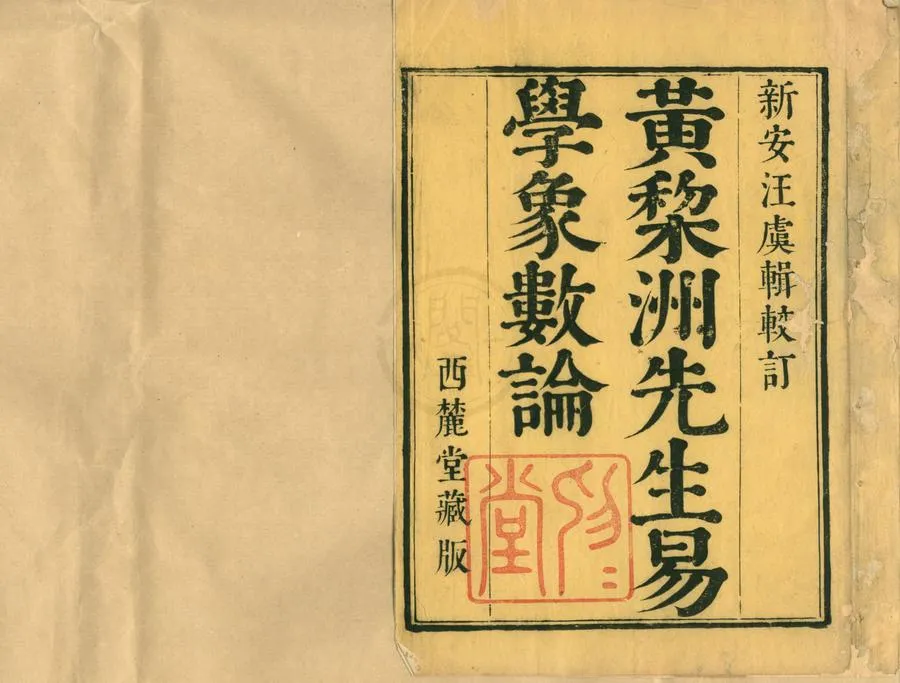 新安汪虞輯較訂
黃棃洲先生易
學象數論
西麓堂藏版